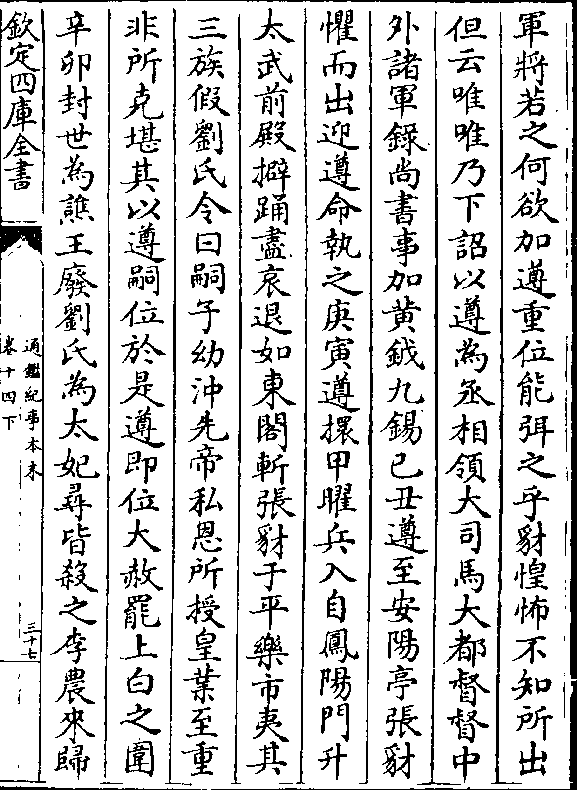 軍將若之何欲加遵重位能弭之乎豺惶怖不知所出
但云唯唯乃下詔以遵為丞相領大司馬大都督督中
外諸軍錄尚書事加黃鉞九錫己丑遵至安陽亭張豺
懼而出迎遵命執之庚寅遵擐甲曜兵入自鳳陽門升
太武前殿擗踊盡哀退如東閣斬張豺于平樂市夷其
三族假劉氏令曰嗣子幼沖先帝私恩所授皇業至重
非所克堪其以遵嗣位於是遵即位大赦罷上白之圍
辛卯封世為譙王廢劉氏為太妃尋皆殺之李農來歸
欽定四庫全書
通鑑紀事本末
卷十四下
三十七